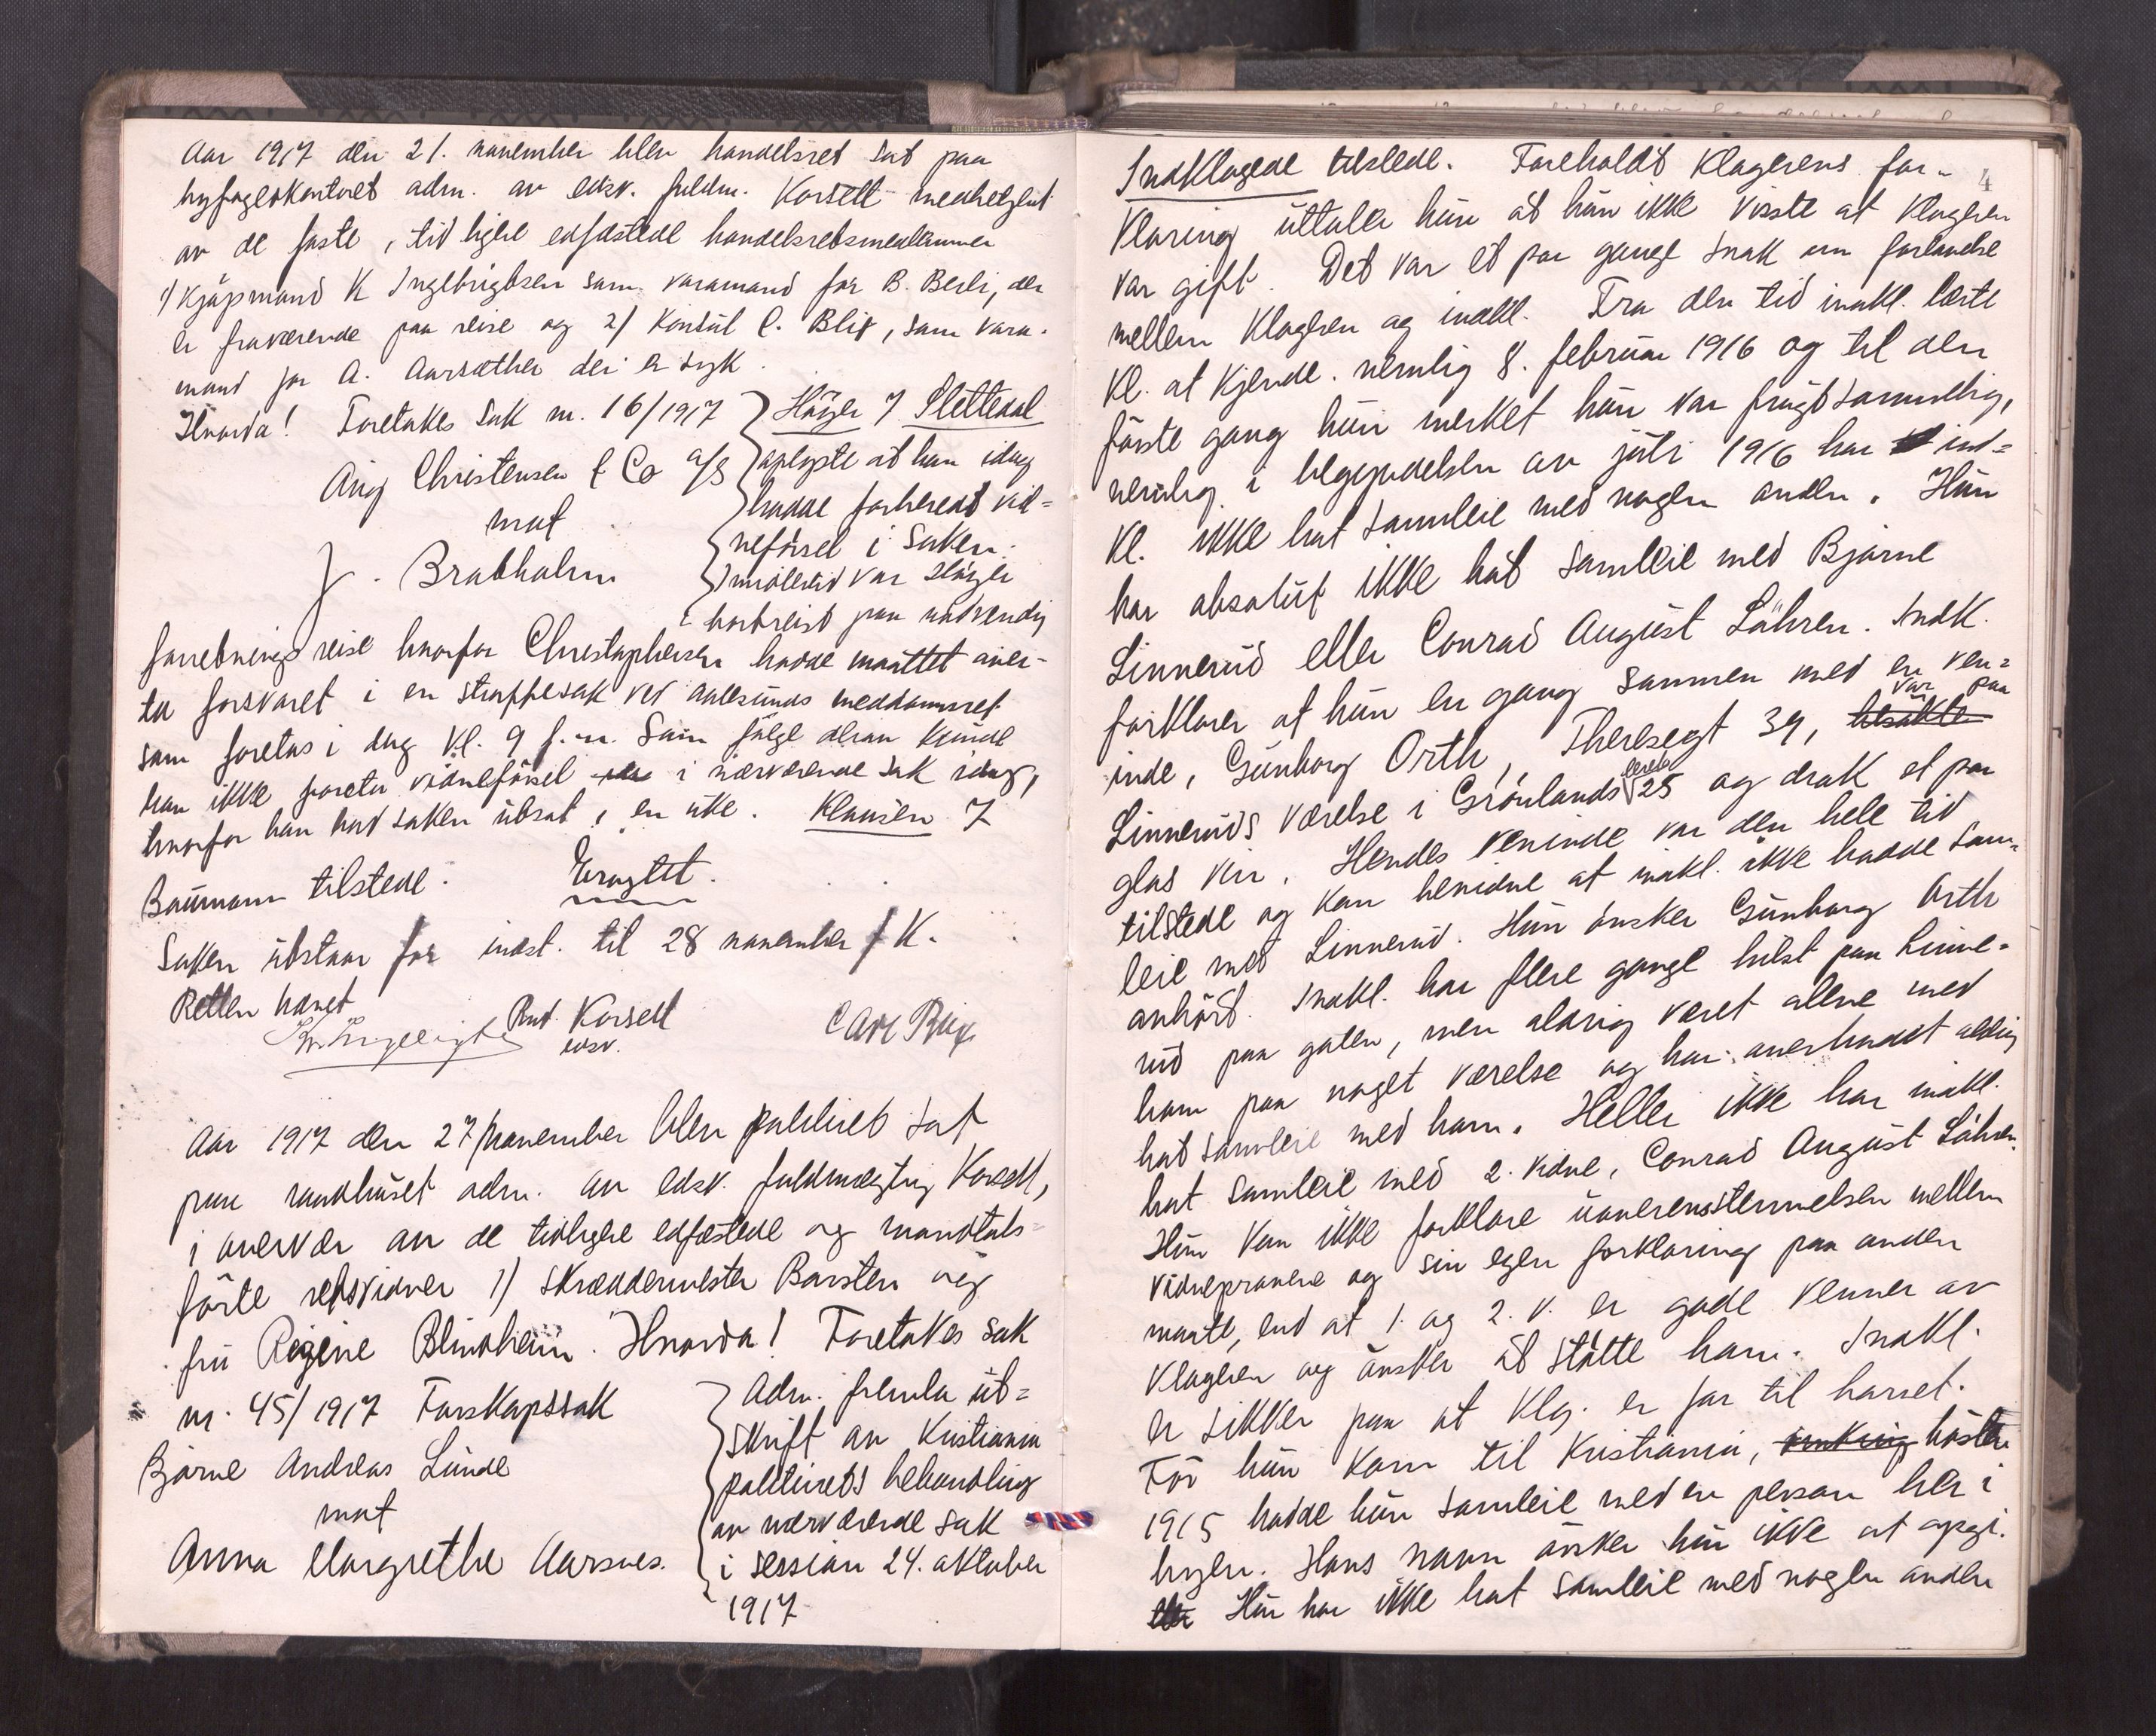 Aar 1917 den 21. november blev handelsret sat paa
byfogedkontoret adm. av edsv. fuldm. Korsett medbetjent
av de faste, tidligere edfæstede handelsretsmedlemmer
1) Kjøpmand K Ingebrigtsen som varamand for B. Berli, der
er fraværende paa reise og 2) Konsul C. Blix, som vara-
mand for A. Aarsæther der er syk.
Hvorda! Foretakes sak nr. 16/1917
Aug Christensen & Co a/s
mot
J. Brabholm
Høyer f Slettedal
oplyste at han idag
hadde forberedt vid-
neførsel i saken.
Imidlertid var Høyer
bortreist paa nødvendig
forretningsreise hvorfor Christophersen hadde maattet over-
ta forsvaret i en straffesak ved Aalesunds meddomsret
som foretas i dag kl. 9 f.m. Som følge derav kunde
han ikke foreta vidneførsel i nærværende sak idag,
hvorfor han bad saken utsat i en uke. Klausen f
Baumann tilstede. Eragtet.
Saken utstaar for indst. til 28 november f K.
Retten hævet
K. Ingebrigtsen Rud. Korsett Carl Blix
edsv.
Aar 1917 den 27/november blev politiret sat
paa raadhuset adm. av edsv. fuldmægtig Korsett,
i overvær av de tidligere edfæstede og mandtals-
førte retsvidner 1) skræddermester Barsten og
fru Regine Blindheim. Hvorda! Foretakes sak
nr. 45/1917 Farskapssak
Bjarne Andreas Lunde
mot
Anna Margrethe Aarsnes.
Adm. fremla ut-
skrift av Kristiania
politirets behandling
av nærværende sak
i session 24. oktober
1917
4
Indklagede tilstede. Foreholdt klagerens for-
klaring uttaler hun at hun ikke visste at klageren
var gift. Det var et par gange snak om forlovelse
mellem klageren og indkl. Fra den tid indkl. lærte
kl. at kjende. nemlig 8. februar 1916 og til den
første gang hun merket hun var frugtsommelig,
nemlig i begyndelsen av juli 1916 har ind-
kl. ikke hat samleie med nogen anden. Hun
har absolut ikke hat samleie med Bjarne
Linnerud eller Conrad August Løhren. Indk.
forklarer at hun en gang sammen med en ven-
inde, Gunborg Orth, Theresegt 39, besøkte var paa
Linneruds værelse i Grønlandsleret 25 og drak et par
glas vin. Hendes veninde var den hele tid
tilstede og kan bevidne at indkl. ikke hadde sam-
leie med Linnerud. Hun ønsker Gunborg Orth
anhørt. Indkl. har flere gange hilst paa Linne-
rud paa gaten, men aldrig været alene med
ham paa noget værelse og har overhodet aldrig
hat samleie med ham. Heller ikke har indkl.
hat samleie med 2. vidne, Conrad August Løhren.
Hun kan ikke forklare uoverensstemmelsen mellem
vidneprovene og sin egen forklaring paa anden
maate, end at 1. og 2. v. er gode venner av
klageren og ønsker at støtte ham. Indkl.
er sikker paa at klag. er far til barnet.
Før hun kom til Kristiania, omkring høsten
1915 hadde hun samleie med en person her i
byen. Hans navn ønsker hun ikke at opgi.
Hun har ikke hat samleie med nogen anden